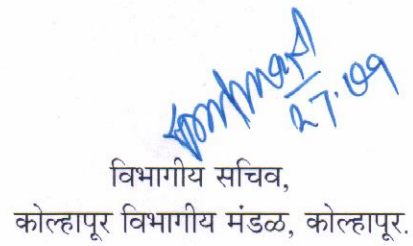 विभागीय सचिव,
कोल्हापूर विभागीय मंडळ, कोल्हापूर.